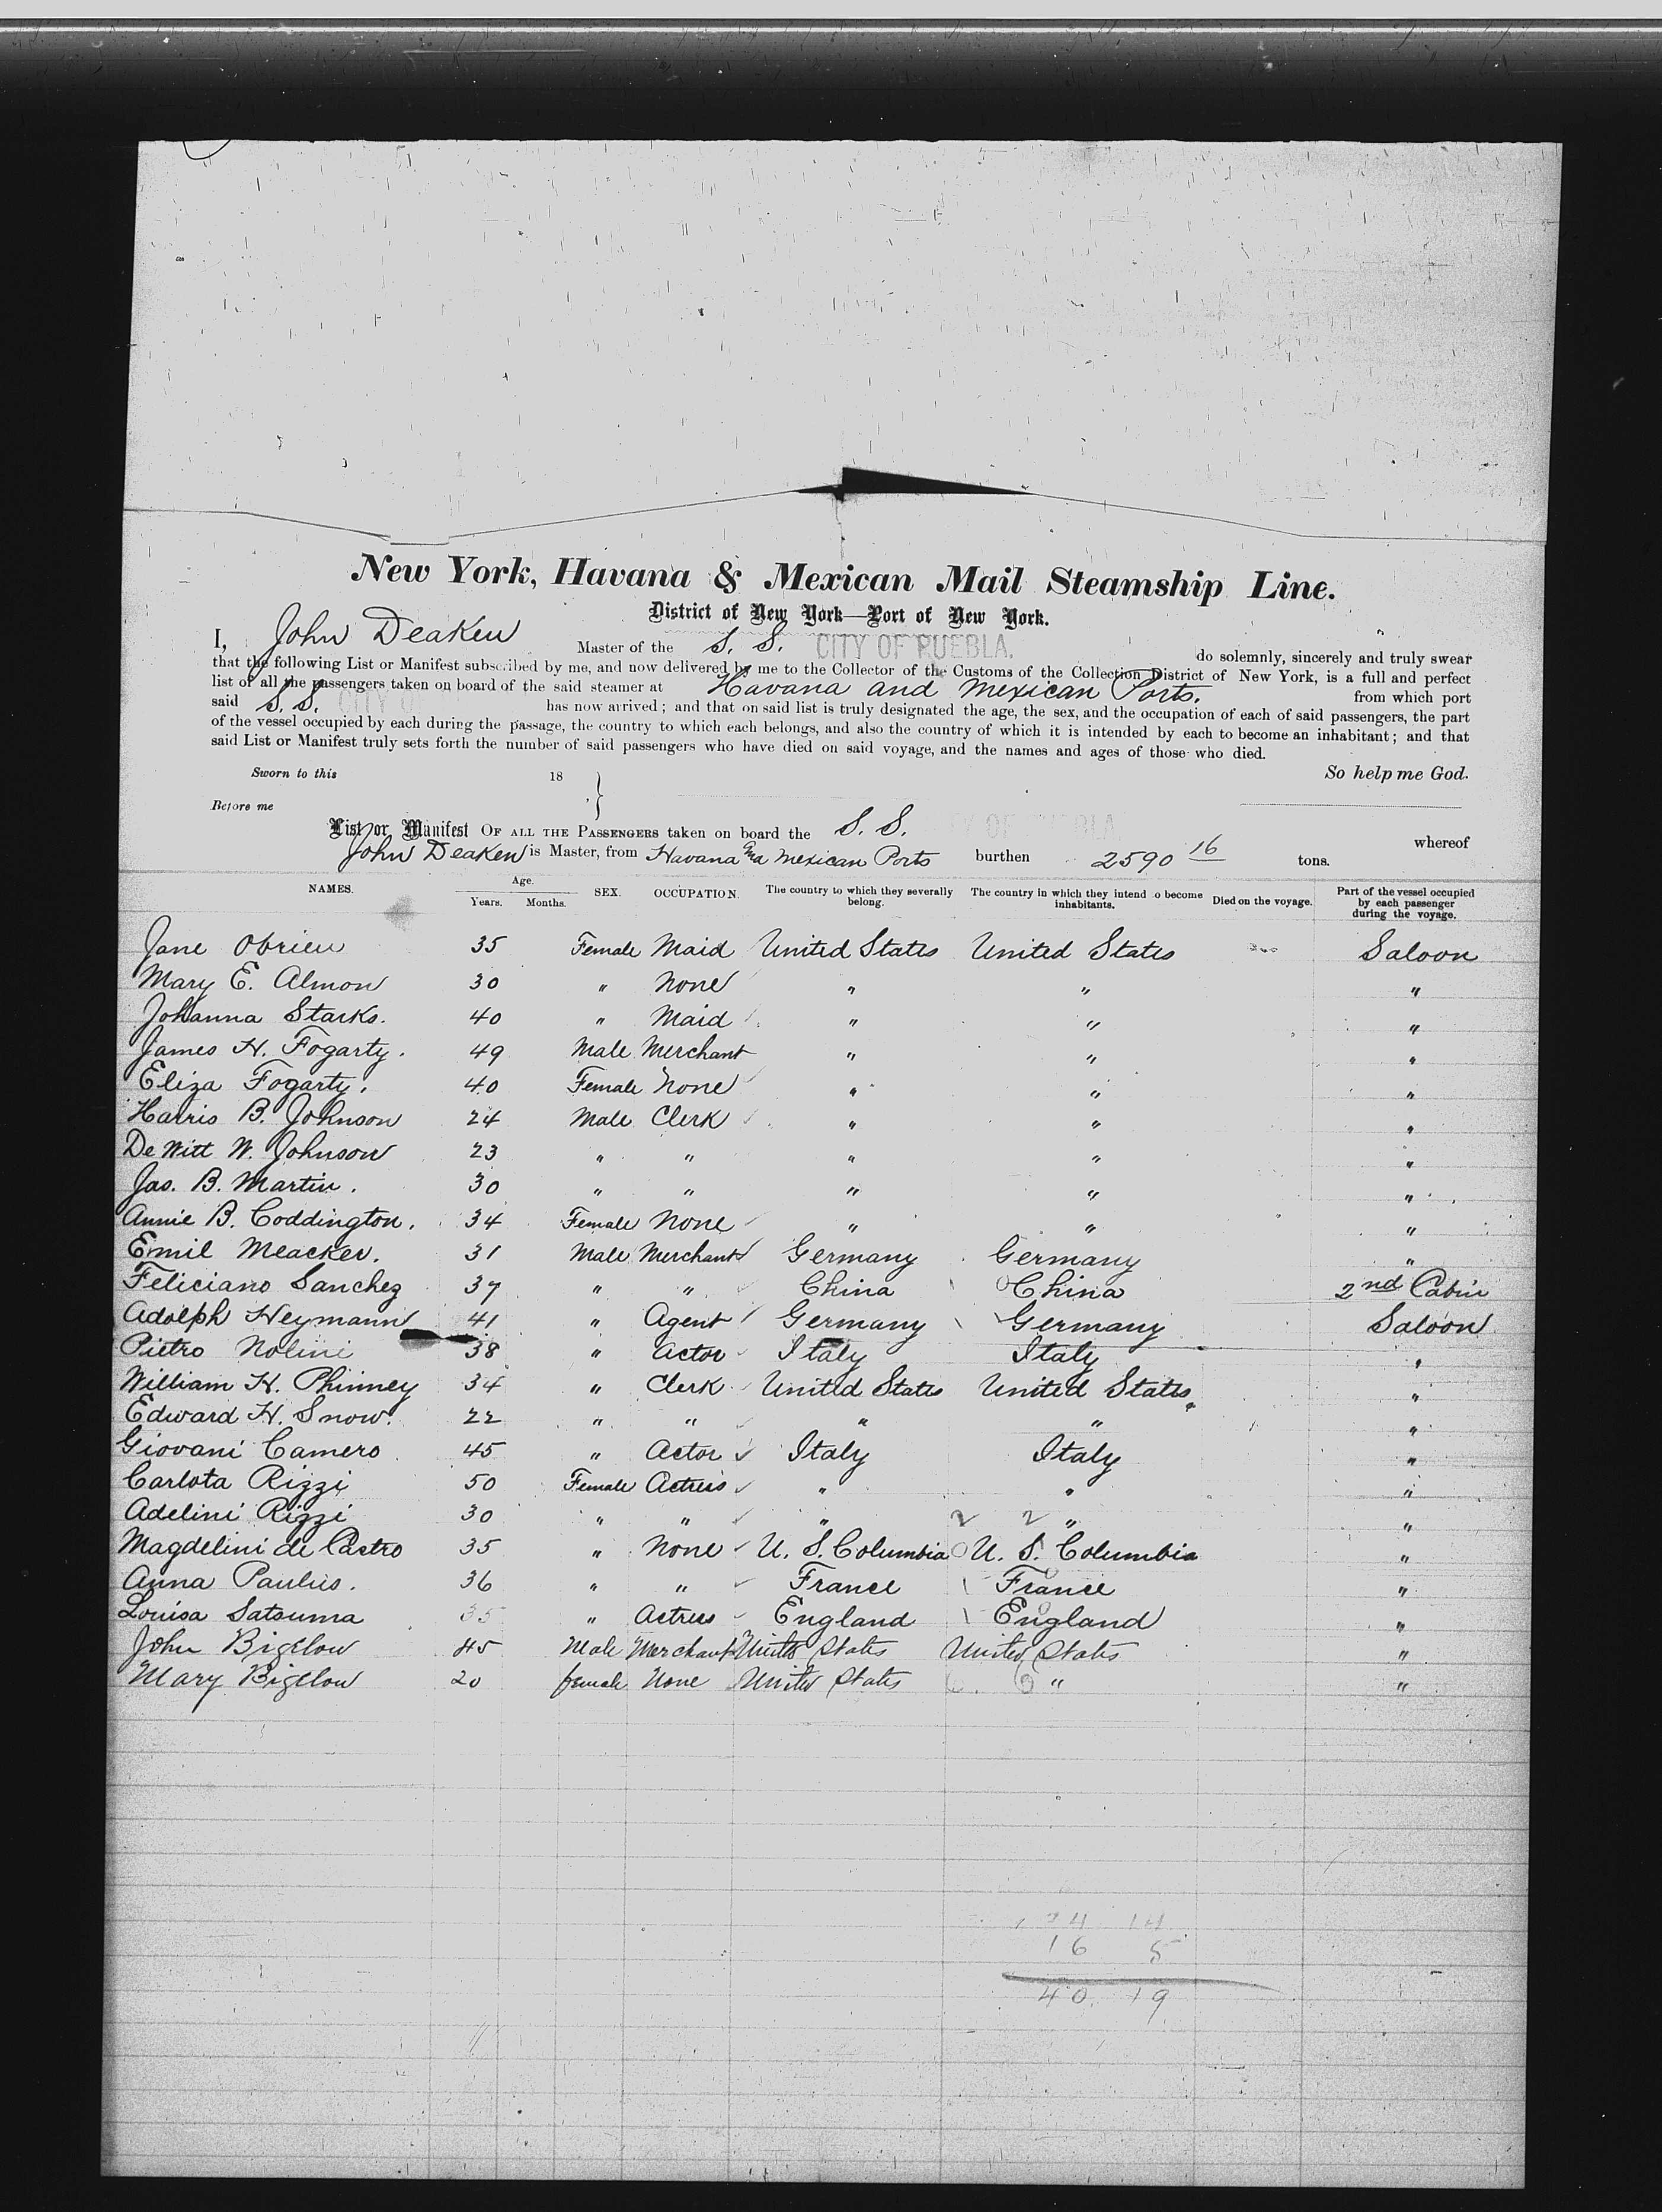 New York, Havana & Mexican Mail Steamship Line.
District of New York—Port of New York.
I, John Deaken Master of the S. S. CITY OF PUEBLA. do solemnly, sincerely and truly swear
that the following List or Manifest subscribed by me, and now delivered by me to the Collector of the Customs of the Collection District of New York, is a full and perfect
list of all the passengers taken on board of the said steamer at Havana and Mexican Ports. from which port
said S. S. CITY OF has now arrived; and that on said list is truly designated the age, the sex, and the occupation of each of said passengers, the part
of the vessel occupied by each during the passage, the country to which each belongs, and also the country of which it is intended by each to become an inhabitant; and that
said List or Manifest truly sets forth the number of said passengers who have died on said voyage, and the names and ages of those who died.
Sworn to this 18 So help me God.
Before me
List or Manifest OF ALL THE PASSENGERS taken on board the S. S. whereof
John Deaken is Master, from Havana and Mexican Ports burthen 2590 16 tons.
NAMES. Age. Years. Months. SEX. OCCUPATION. The country to which they severally belong. The country in which they intend o become inhabitants. Died on the voyage. Part of the vessel occupied by each passenger during the voyage.
Jane Obrien 35 Female Maid United States United States Saloon
Mary E. Almon 30 " None " " "
Johanna Starks. 40 " Maid " " "
James H. Fogarty. 49 Male Merchant " " "
Eliza Fogarty. 40 Female None " " "
Harris B. Johnson 24 Male Clerk " " "
De Witt W. Johnson 23 " " " " "
Jas. B. Martin. 30 " " " " "
Annie B. Coddington. 34 Female None " " "
Emil Meacker. 31 Male Merchant Germany Germany "
Feliciano Sanchez 37 " " China China 2nd Cabin
Adolph Heymann 41 " Agent Germany Germany Saloon
Pietro Nolini 38 " Actor Italy Italy "
William H. Phinney 34 " Clerk United States United States "
Edward H. Snow. 22 " " " " "
Giovani Camero 45 " Actor Italy Italy "
Carlota Rizzi 50 Female Actress " " "
Adelini Rizzi 30 " " " 2 2 " "
Magdelini de Castro 35 " None U. S. Columbia U. S. Columbia "
Anna Paulus. 36 " " France France "
Louisa Satsuma 35 " Actress England England "
John Bigelow 45 Male Merchant United States United States "
Mary Bigelow 20 female None United States " "
24 14
16 5
40 19